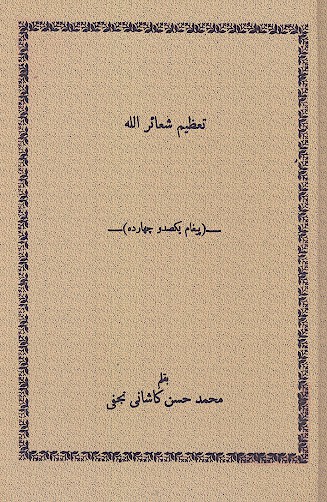 تعظیم شعائر الله
ـــ(پیغام یکصدو چهارده)ـــ
بقلم
محمد حسن کاشانی نجفی